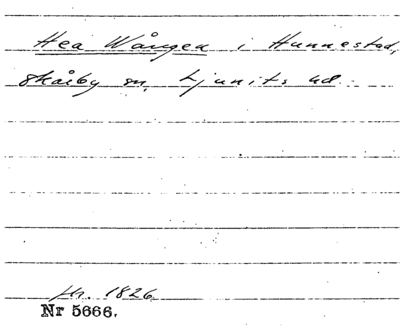 Hea Wången i Hunnestad,
Skårby sn, Ljunits hd.
fr. 1826.
Nr 5666.